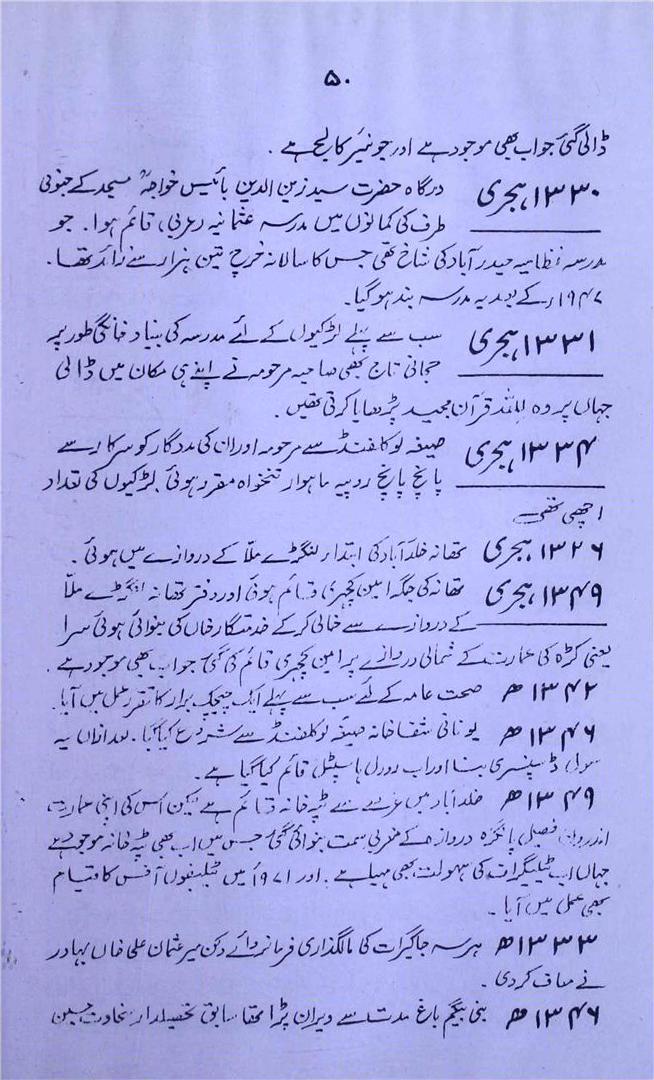 ۵۰
ڈالی گئی جو اب بھی موجود ہے اور جونیئر کالج ہے ۔
۱۳۳۰ ہجری درگاہ حضرت سید زین الدین بائیس خواجہؒ مسجد کے جنوبی
طرف کی کمانوں میں مدرسہ عثمانیہ (عربی) قائم ہوا ۔ جو
مدرسہ نظامیہ حیدرآباد کی شاخ تھی جس کا سالانہ خرچ تین ہزار سے زائد تھا ۔
۱۹۴۷ء کے بعد یہ مدرسہ بند ہو گیا ۔
۱۳۳۱ ہجری سب سے پہلے لڑکیوں کے لئے مدرسہ کی بنیاد خانگی طور پر
حجانی تاج بھی صاحبہ مرحومہ نے اپنے ہی مکان میں ڈالی
جہاں پر وہ للہ قرآن مجید پڑھایا کرتی تھیں ۔
۱۳۳۴ ہجری صیغہ لوکلفنڈ سے مرحومہ اور ان کی مددگار کو سرکار سے
پانچ پانچ روپیہ ماہوار تنخواہ مقرر ہوئی لڑکیوں کی تعداد
اچھی تھی
۱۳۲۶ ہجری تھانہ خلدآباد کی ابتداء لنگڑے ملّا کے دروازے میں ہوئی ۔
۱۳۴۹ ہجری تھانہ کی جگہ امین کچہری قائم ہوئی اور دفتر تھانہ لنگڑے ملّا
کے دروازے سے خالی کرکے خدمتگار خاں کی بنوائی ہوئی سرا
یعنی کڑہ کی عمارت کے شمالی دروازے پر امین کچہری قائم کی گئی جو اب بھی موجود ہے ۔
۱۳۴۲ھ صحت عامہ کے لئے سب سے پہلے ایک چیچک برار کا تقرر عمل میں آیا ۔
۱۳۴۶ھ یونانی شفاخانہ صیغہ لوکلفنڈ سے شروع کیا گیا ۔ بعد ازاں یہ
سول ڈسپنسری بنا اور اب رورل ہاسپٹل قائم کیا گیا ہے ۔
۱۳۴۹ھ خلدآباد میں عرصے سے ٹپہ خانہ قائم ہے لیکن اس کی اپنی عمارت
اندرون فصیل پانگرہ دروازہ کے مغربی سمت بنوائی گئی جس میں اب بھی ٹپہ خانہ موجود ہے
جہاں اب ٹیلیگرات کی سہولت بھی مہیا ہے ۔ اور ۱۹۷۱ء میں ٹیلیفون آفس کا قیام
بھی عمل میں آیا ۔
۱۳۳۳ھ ہر سہ جاگیرات کا مالگذاری فرمانروائے دکن میر عثمان علی خاں بہادر
نے معاف کر دی ۔
۱۳۴۶ھ بنی بیگم باغ مدت سے ویران پڑا تھا سابق تحصیلدار سخاوت حسین